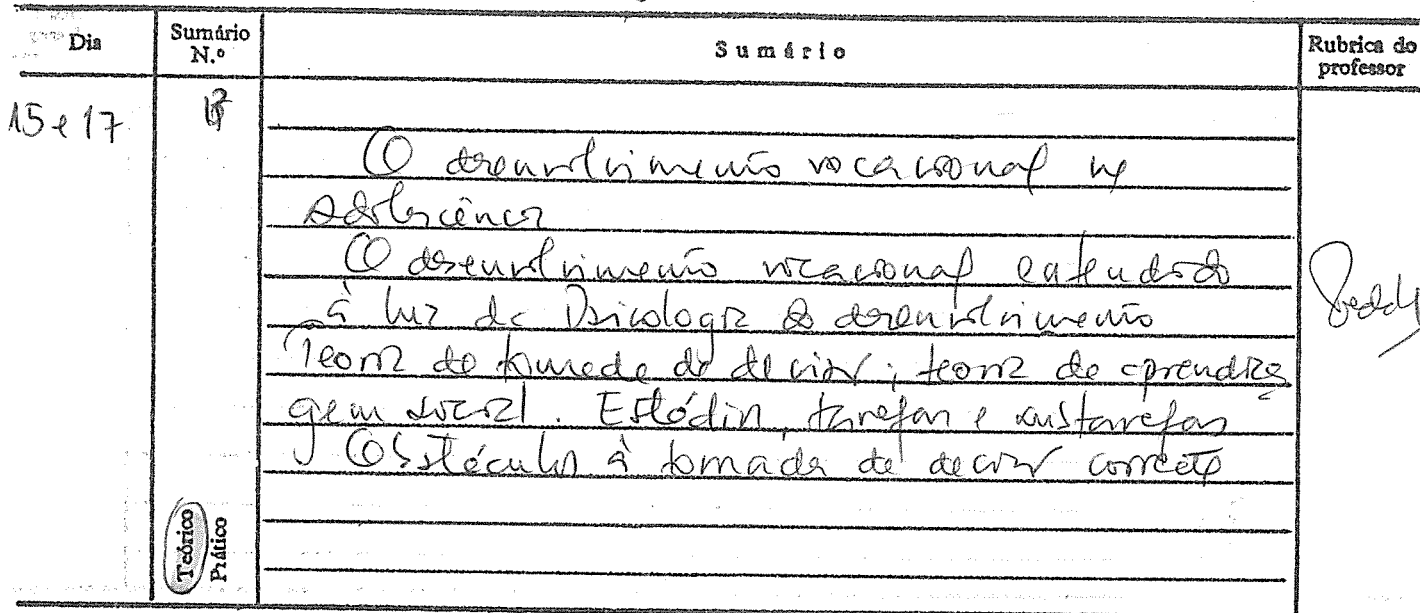 Dia
Sumário N.º
Sumário
Rubrica do professor
15 e 17
O desenvolvimento vocacional na
adolescência
O desenvolvimento vocacional entendido
à luz da Psicologia do desenvolvimento
Teoria da tomada de decisão; teoria da aprendiza
gem social. Estádios, tarefas e
Obstáculos à tomada de decisão correcta
Teórico
Prático